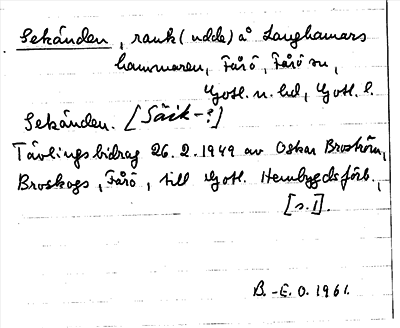 Sekånden, rauk (udde) å Langhamars
hammaren, Fårö, Fårö sn,
Gotl. n. hd, Gotl. l.
Sekånden. [Säik-?]
Tävlingsbidrag 26.2.1949 av Oskar Broström,
Broskogs, Fårö, till Gotl. Hembygdsförb.,
[s.1].
B.-E.O. 1961.